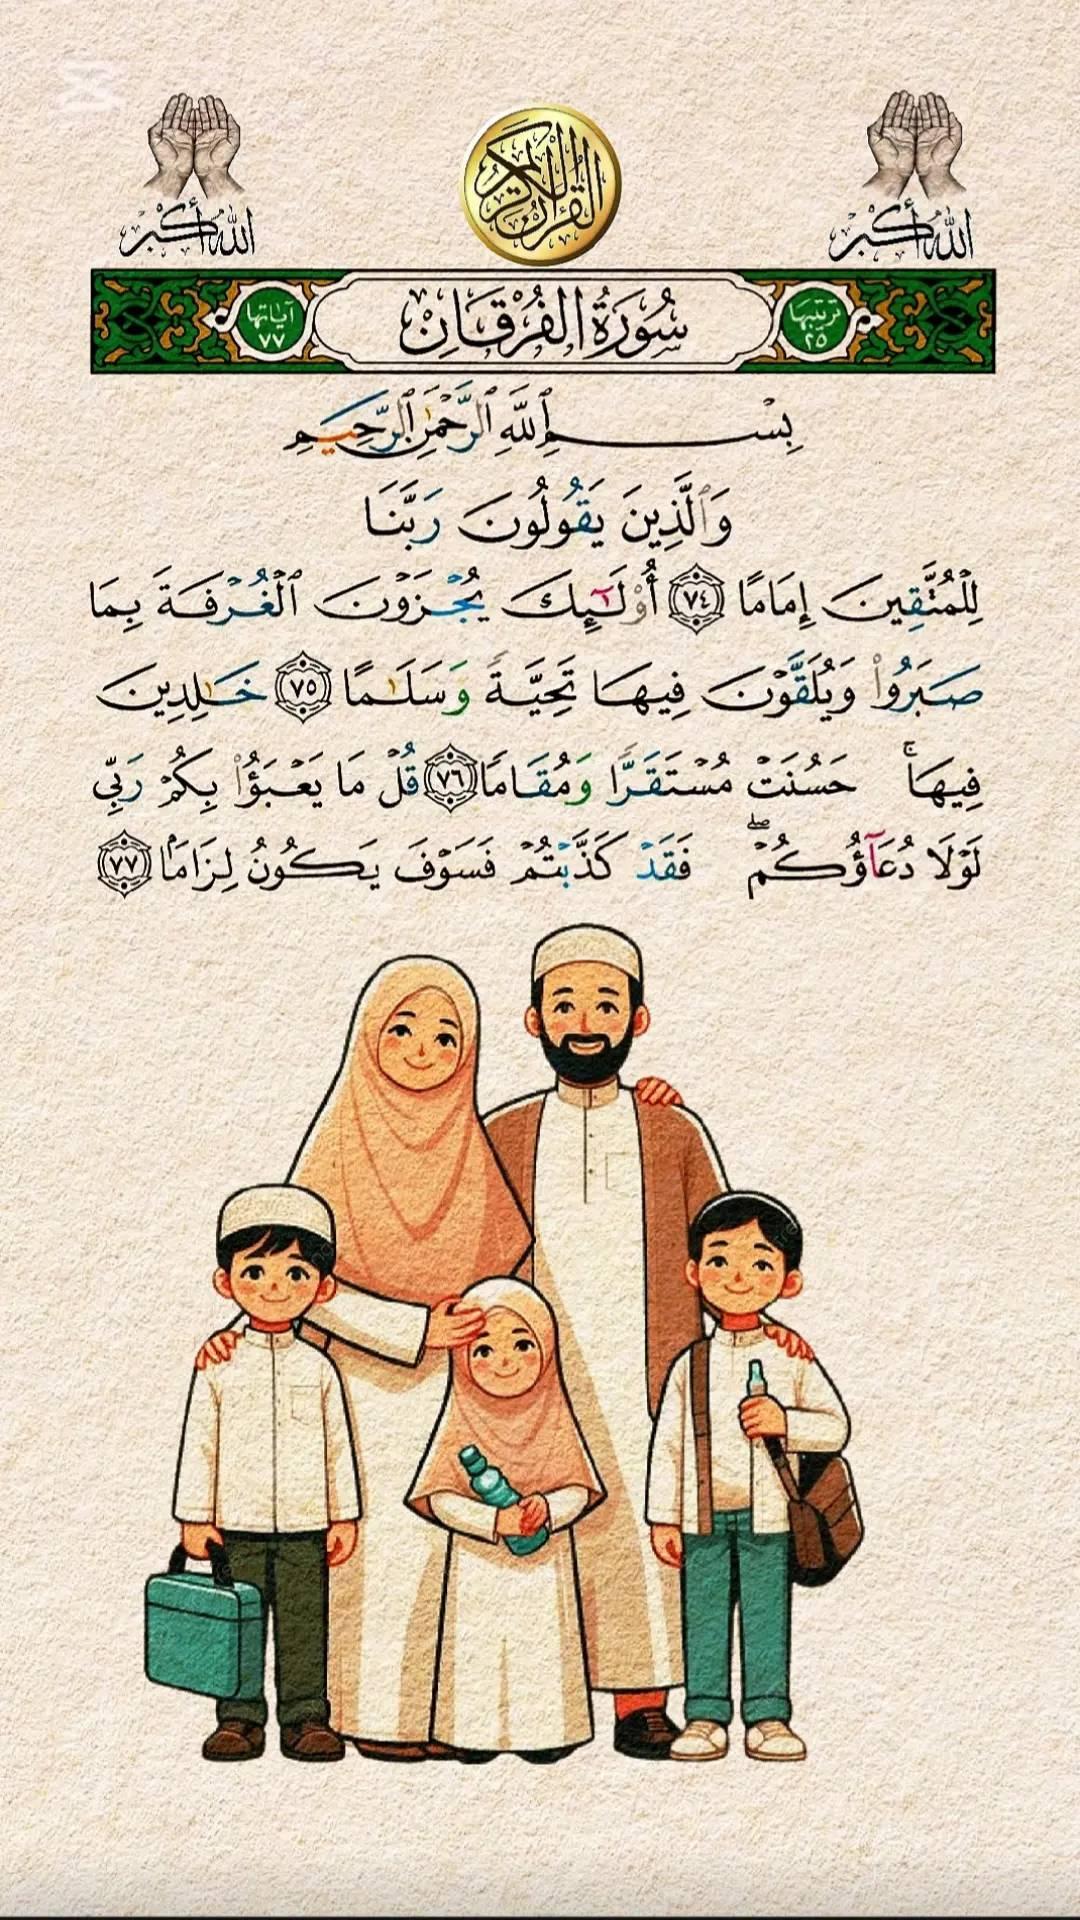 الله أكبر
القرآن الكريم
الله أكبر
ترتيبها ٢٥
سُورَةُ الفُرْقَانِ
آياتها ٧٧
بِسْمِ ٱللَّهِ ٱلرَّحْمَٰنِ ٱلرَّحِيمِ
وَٱلَّذِينَ يَقُولُونَ رَبَّنَا
لِلْمُتَّقِينَ إِمَامًا ٧٤ أُوْلَٰٓئِكَ يُجْزَوْنَ ٱلْغُرْفَةَ بِمَا
صَبَرُواْ وَيُلَقَّوْنَ فِيهَا تَحِيَّةً وَسَلَٰمًا ٧٥ خَٰلِدِينَ
فِيهَاۚ حَسُنَتْ مُسْتَقَرًّا وَمُقَامًا ٧٦ قُلْ مَا يَعْبَؤُاْ بِكُمْ رَبِّي
لَوْلَا دُعَآؤُكُمْۖ فَقَدْ كَذَّبْتُمْ فَسَوْفَ يَكُونُ لِزَامَۢا ٧٧